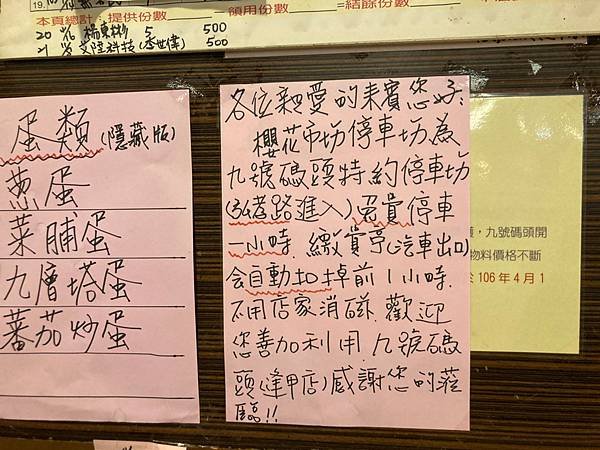 本頁總計：提供份數 － 領用份數 ＝結餘份數
20 楊東彬 5 500
21 艾陞科技(李世偉) 500
蛋類(隱藏版)
蔥蛋
菜脯蛋
九層塔蛋
蕃茄炒蛋
各位親愛的來賓您好:
櫻花市場停車場為
九號碼頭特約停車場
(孝路進入)免費停車
一小時.繳費亭(汽車出口)
會自動扣掉前1小時.
不用店家消磁.歡迎
您善加利用.九號碼
頭(逢甲店)感謝您的蒞
臨!!
，九號碼頭開
物料價格不斷
於 106 年 4 月 1